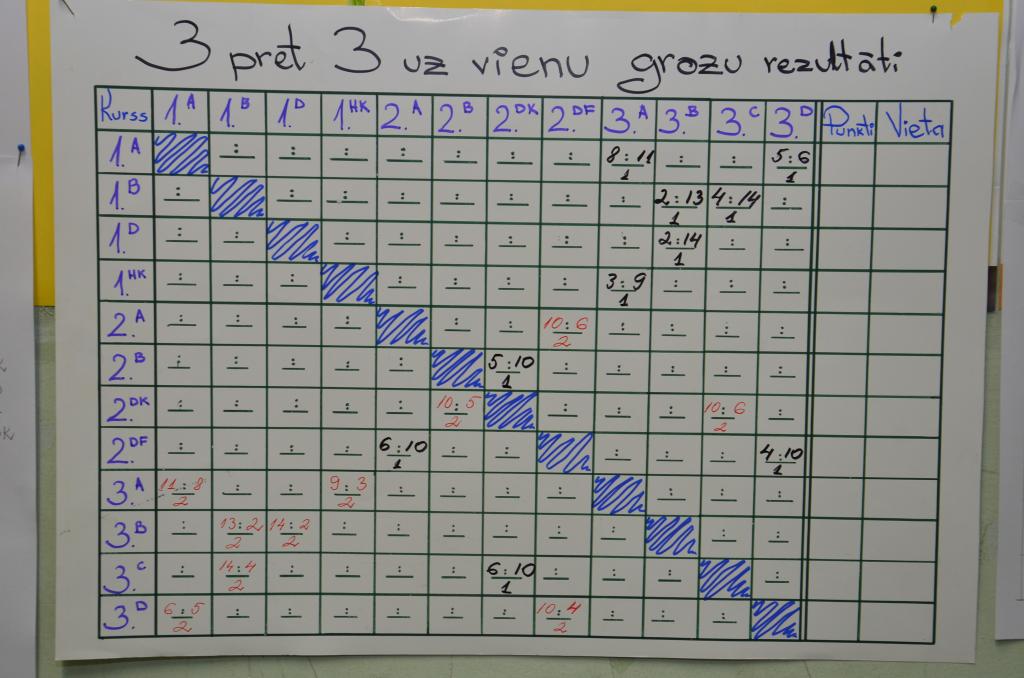 3 pret 3 uz vienu grozu rezultāti
Kurss 1.A 1.B 1.D 1.HK 2.A 2.B 2.DK 2.DF 3.A 3.B 3.C 3.D Punkti Vieta
1.A : : : : : : : 8:11 1 : : 5:6 1
1.B : : : : : : : : 2:13 1 4:14 1 :
1.D : : : : : : : : 2:14 1 : :
1.HK : : : : : : : 3:9 1 : : :
2.A : : : : : : 10:6 2 : : : :
2.B : : : : : 5:10 1 : : : : :
2.DK : : : : : 10:5 2 : : : 10:6 2 :
2.DF : : : : 6:10 1 : : : : : 4:10 1
3.A 11:8 2 : : 9:3 2 : : : : : : :
3.B : 13:2 2 14:2 2 : : : : : : : :
3.C : 14:4 2 : : : : 6:10 1 : : : :
3.D 6:5 2 : : : : : : 10:4 2 : : :